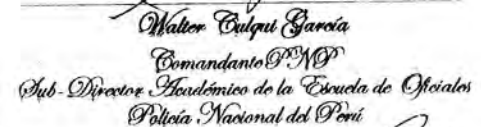 Walter Culqui García
Comandante PNP
Sub-Director Académico de la Escuela de Oficiales
Policía Nacional del Perú